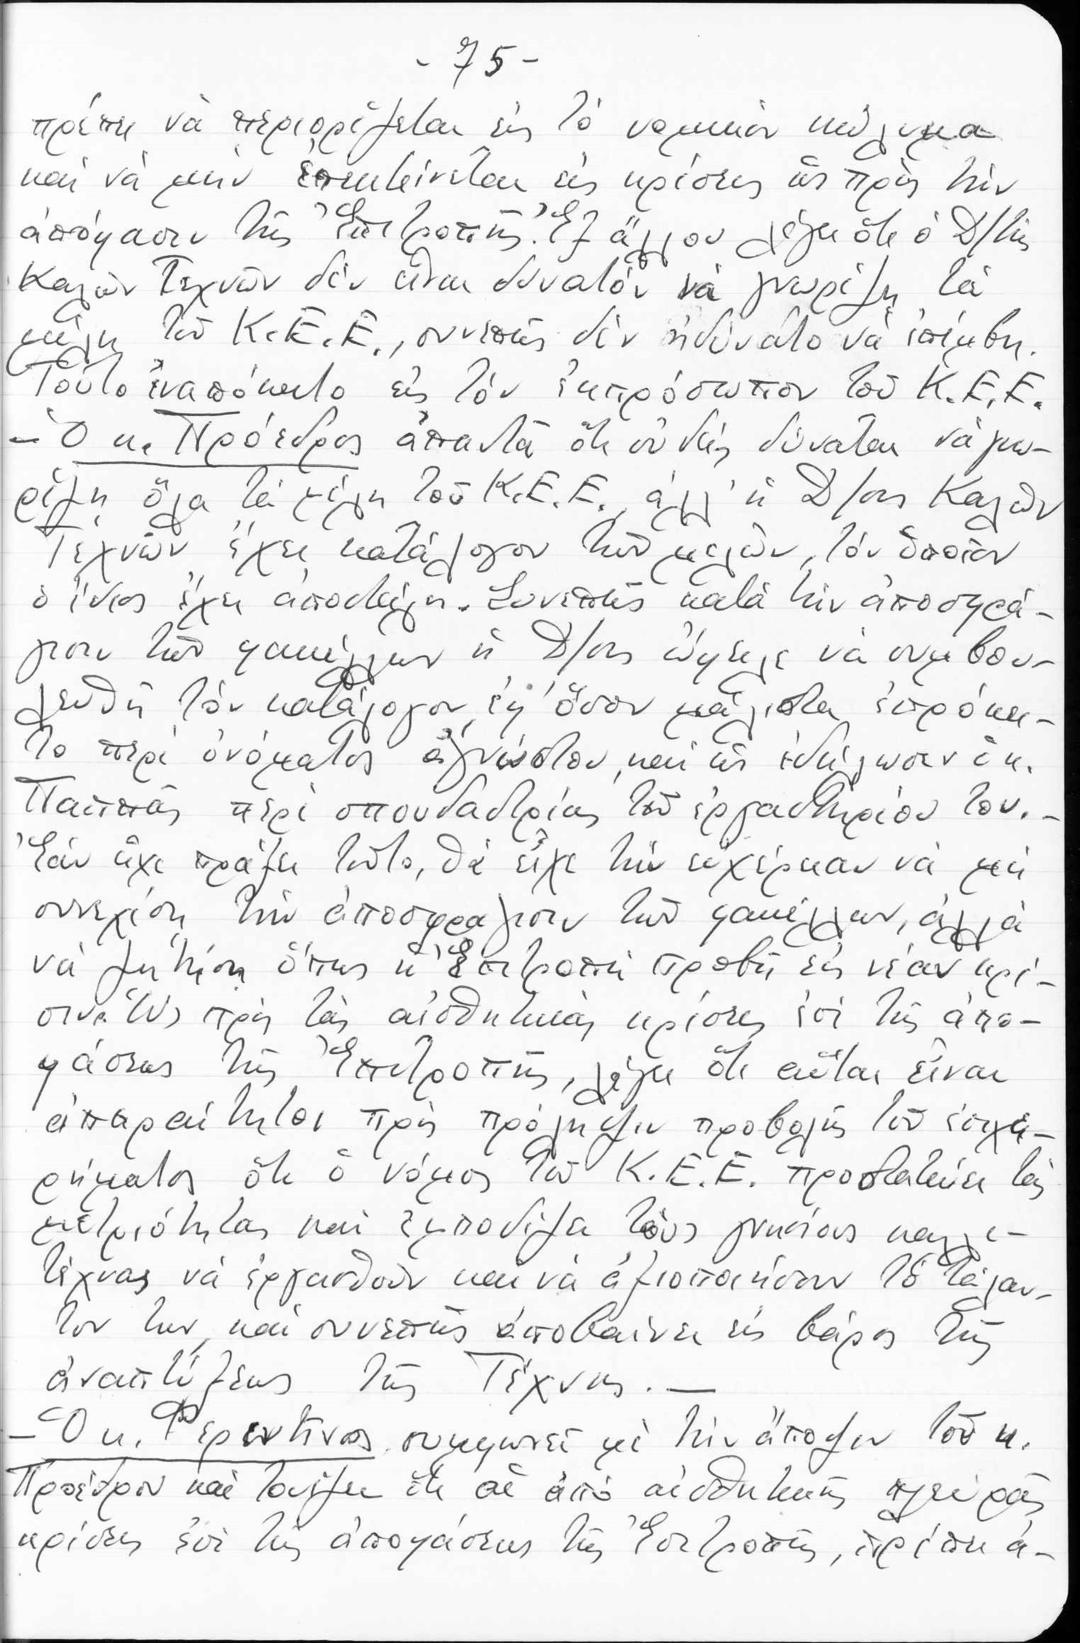 - 75 -
πρέπει νὰ περιορίζεται εἰς τὸ νομικὸν κώλυμα
καὶ νὰ μὴν ἐπεκτείνεται εἰς κρίσεις ὡς πρὸς τὴν
ἀπόφασιν τῆς Ἐπιτροπῆς. Ἐξ ἄλλου λέγει ὅτι ὁ Δ/τὴς
Καλῶν Τεχνῶν δὲν εἶναι δυνατὸν νὰ γνωρίζῃ τὰ
μέλη τοῦ Κ.Ε.Ε., συνεπῶς δὲν ἠδύνατο νὰ ἐπέμβῃ.
Τοῦτο ἐναπόκειτο εἰς τὸν ἐκπρόσωπον τοῦ Κ.Ε.Ε.
- Ὁ κ. Πρόεδρος ἀπαντᾶ ὅτι οὐδεὶς δύναται νὰ γνω-
ρίζῃ ὅλα τὰ μέλη τοῦ Κ.Ε.Ε., ἀλλ' ἡ Δ/σις Καλῶν
Τεχνῶν ἔχει κατάλογον τῶν μελῶν, τὸν ὁποῖον
ὁ ἴδιος ἔχει ἀποστείλη. Συνεπῶς κατὰ τὴν ἀποσφρά-
γισιν τῶν φακέλλων ἡ Δ/σις ὤφειλε νὰ συμβου-
λευθῆ τὸν κατάλογον, ἐφ' ὅσον μάλιστα ἐπρόκει-
το περὶ ὀνόματος ἀγνώστου, καὶ ὡς ἐδήλωσεν ὁ κ.
Παππᾶς περὶ σπουδαστρίας τοῦ ἐργαστηρίου του. -
Ἐὰν εἶχε πράξει τοῦτο, θὰ εἶχε τὴν εὐχέρειαν νὰ μὴ
συνεχίσῃ τὴν ἀποσφράγισιν τῶν φακέλλων, ἀλλὰ
νὰ ζητήσῃ ὅπως ἡ Ἐπιτροπὴ προβῆ εἰς νέαν κρί-
σιν. Ὡς πρὸς τὰς αἰσθητικὰς κρίσεις ἐπὶ τῆς ἀπο-
φάσεως τῆς Ἐπιτροπῆς, λέγει ὅτι αὗται εἶναι
ἀπαραίτητοι πρὸς πρόληψιν προβολῆς τοῦ ἐπιχει-
ρήματος ὅτι ὁ νόμος τοῦ Κ.Ε.Ε. προστατεύει τὰς
μετριότητας καὶ ἐμποδίζει τοὺς γνησίους καλλι-
τέχνας νὰ ἐργασθοῦν καὶ νὰ ἀξιοποιήσουν τὸ τάλαν-
τον των, καὶ συνεπῶς ἀποβαίνει εἰς βάρος τῆς
ἀναπτύξεως τῆς Τέχνης. -
- Ὁ κ. Φερεντῖνος συμφωνεῖ μὲ τὴν ἄποψιν τοῦ κ.
Προέδρου καὶ τονίζει ὅτι αἱ ἀπὸ αἰσθητικῆς πλευρᾶς
κρίσεις ἐπὶ τῆς ἀποφάσεως τῆς Ἐπιτροπῆς, πρέπει ἀ-